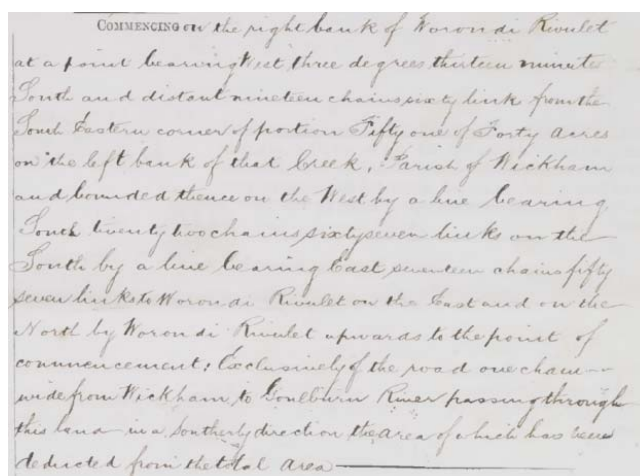 COMMENCING on the right bank of Worondi Rivulet
at a point bearing West three degrees thirteen minute
South and distant nineteen chains sixty links from the
South Eastern corner of portion Fifty one of Forty Acres
on the left bank of that Creek, Parish of Wickham
and bounded thence on the West by a line bearing
South twenty two chains sixty seven links on the
South by a line bearing East seventeen chains fifty
seven links to Worondi Rivulet on the East and on the
North by Worondi Rivulet upwards to the point of
commencement: Exclusively of the road one chain
wide from Wickham to Goulburn River passing through
this land in a Southerly direction the area of which has been
deducted from the total area